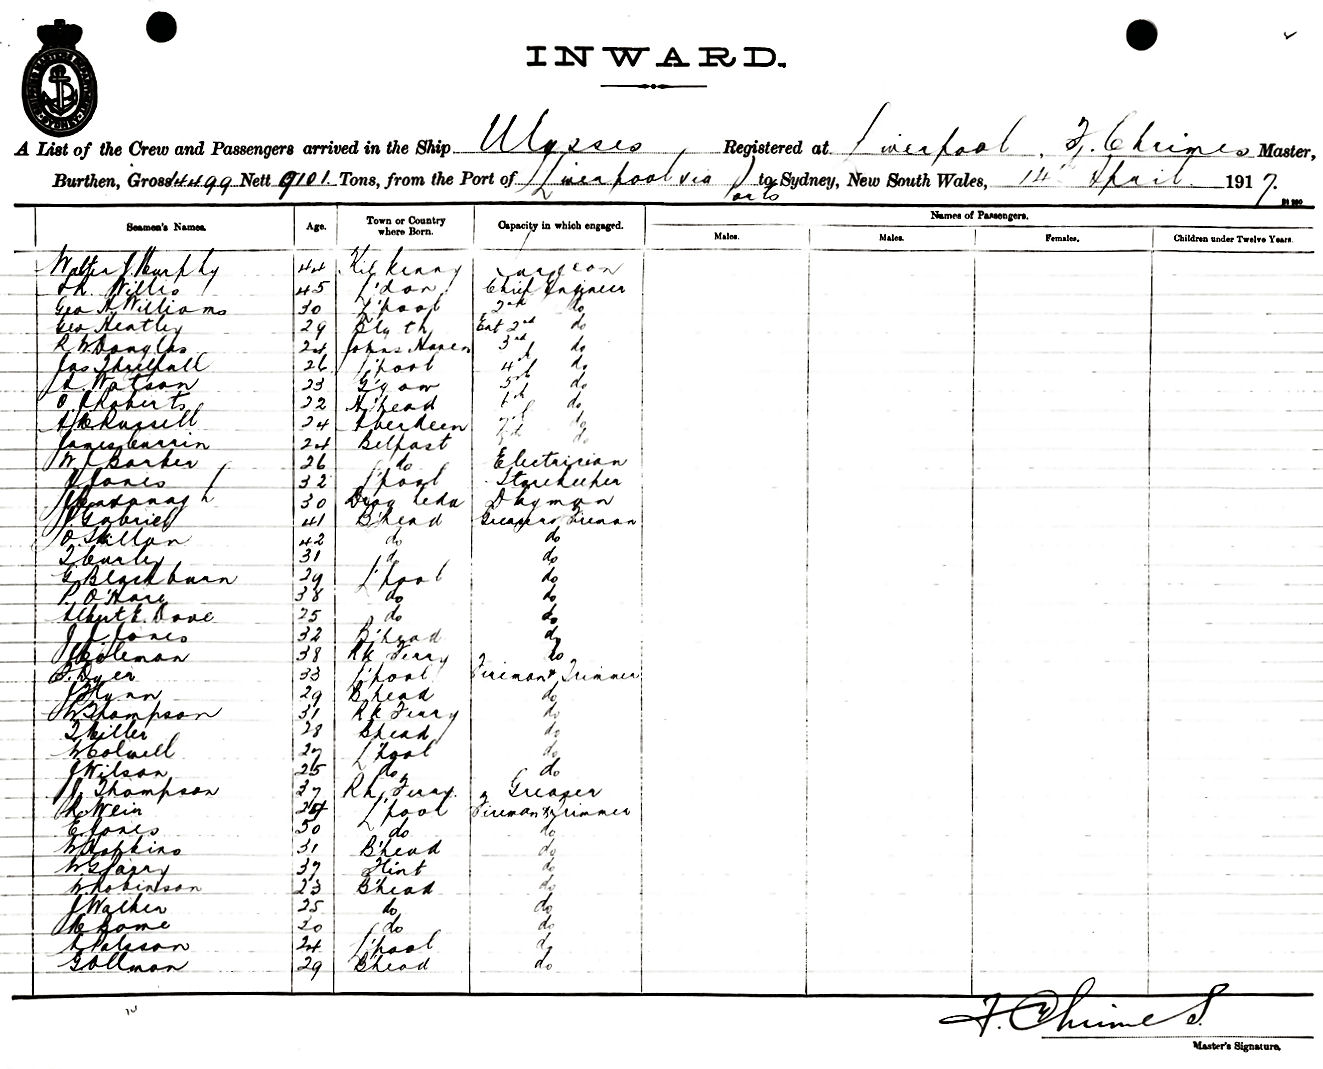 INWARD.
A List of the Crew and Passengers arrived in the Ship Ulysses, Registered at Liverpool, F. Chrimes Master,
Burthen, Gross 14499 Nett 9101 Tons, from the Port of Liverpool via Ports to Sydney, New South Wales, 14th April 1917.
Seamen's Names. Age. Town or Country where Born. Capacity in which engaged. Names of Passengers.
Males. Males. Females. Children under Twelve Years.
Walter J. Murphy 44 Kilkenny Surgeon
Willis 45 L'don Chief Engineer
Geo A Williams 30 L'pool 2nd do
Geo Heatley 29 Blyth Ext 2nd do
R W Douglas 24 Johns Haven 3rd do
Jas Threlfall 26 L'pool 4th do
Watson 23 G'gow 5th do
O Roberts 22 B'head 6th do
Russell 24 Aberdeen 7th do
James Currin 24 Belfast do
W Barker 26 do Electrician
J Jones 32 L'pool Storekeeper
J Cavanagh 30 Drogheda Dayman
J Gabriel 41 B'head Greaser & Fireman
O Skillan 42 do do
T Curley 31 do do
G Blackburn 29 L'pool do
P. O'Hare 38 do do
Albert E. Dove 25 do do
J J Jones 32 B'head do
J Coleman 38 Rk Ferry do
Dyer 33 L'pool Fireman & Trimmer
J Flynn 29 B'head do
W Thompson 31 Rk Ferry do
T Miller 28 B'head do
W Colwell 27 L'pool do
J Wilson 25 do do
J. Thompson 37 Rk Ferry. Greaser
Wein 24 L'pool Fireman & Trimmer
E Jones 50 do do
W Hopkins 31 B'head do
W G Parry 37 Flint do
W Robinson 23 B'head do
J Walker 25 do do
Rome 30 do do
24 L'pool do
G Ollman 29 B'head do
F. Chrimes.
Master's Signature.